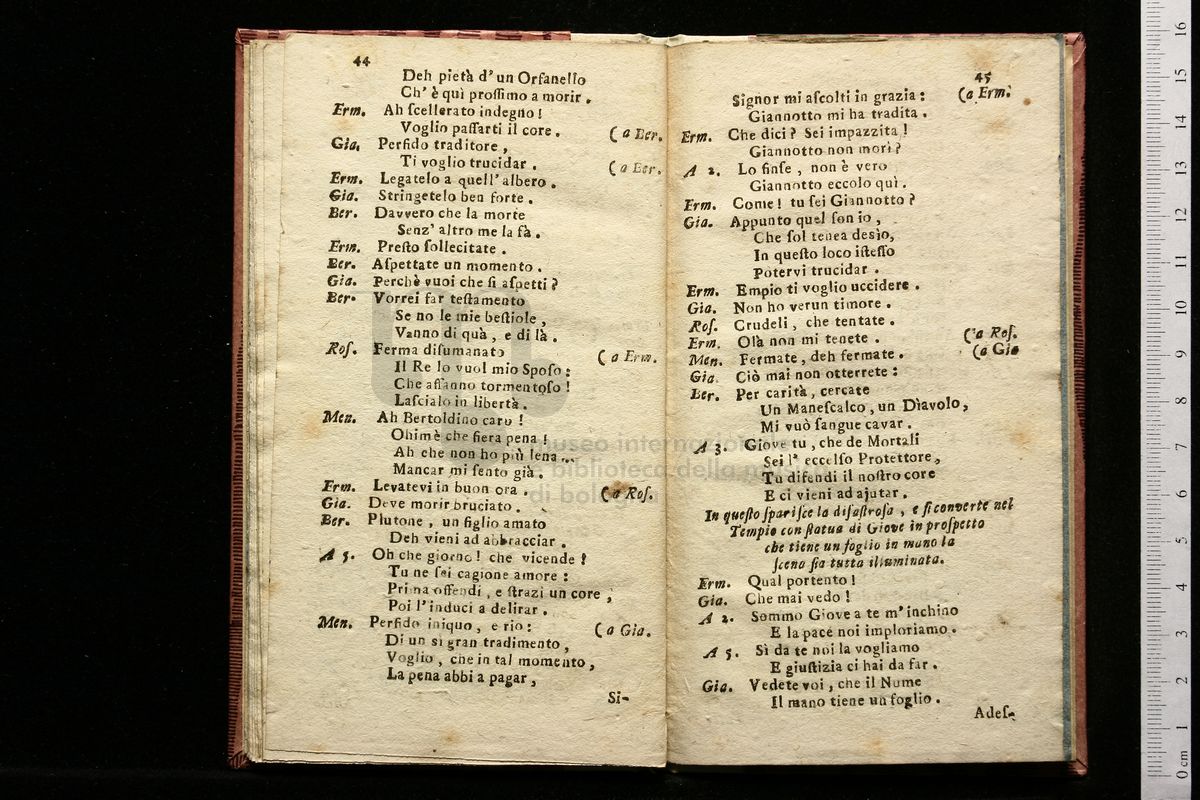 44
Deh pietà d' un Orfanello
Ch' è qui prossimo a morir.
Erm. Ah scellerato indegno!
Voglio passarti il core. (a Ber.
Gia. Perfido traditore,
Ti voglio trucidar. (a Ber.
Erm. Legatelo a quell' albero.
Gia. Stringetelo ben forte.
Ber. Davvero che la morte
Senz' altro me la fà.
Erm. Presto sollecitate.
Ber. Aspettate un momento.
Gia. Perchè vuoi che si aspetti?
Ber. Vorrei far testamento
Se no le mie bestiole,
Vanno di quà, e di là.
Ros. Ferma disumanato (a Erm.
Il Re lo vuol mio Sposo:
Che affanno tormentoso!
Lascialo in libertà.
Men. Ah Bertoldino caro!
Ohimè che fiera pena!
Ah che non ho più lena...
Mancar mi sento già.
Erm. Levatevi in buon ora. (a Ros.
Gia. Deve morir bruciato.
Ber. Plutone, un figlio amato
Deh vieni ad abbracciar.
A 5. Oh che giorno! che vicende!
Tu ne sei cagione amore:
Prima offendi, e strazi un core,
Poi l' induci a delirar.
Men. Perfido iniquo, e rio: (a Gia.
Di un si gran tradimento,
Voglio, che in tal momento,
La pena abbi a pagar,
Si-
45
Signor mi ascolti in grazia: (a Erm.
Giannotto mi ha tradita.
Erm. Che dici? Sei impazzita!
Giannotto non morì?
A 2. Lo finse, non è vero
Giannotto eccolo quì.
Erm. Come! tu sei Giannotto?
Gia. Appunto quel son io,
Che sol tenea desìo,
In questo loco istesso
Potervi trucidar.
Erm. Empio ti voglio uccidere.
Gia. Non ho verun timore.
Ros. Crudeli, che tentate.
Erm. Olà non mi tenete. (a Ros.
Men. Fermate, deh fermate. (a Gia
Gia. Ciò mai non otterrete:
Ber. Per carità, cercate
Un Manescalco, un Dìavolo,
Mi vuò sangue cavar.
A 3. Giove tu, che de Mortali
Sei l' eccelso Protettore,
Tu difendi il nostro core
E ci vieni ad ajutar.
In questo sparisce la disastrosa, e si converte nel
Tempio con statua di Giove in prospetto
che tiene un foglio in mano la
scena sia tutta illuminata.
Erm. Qual portento!
Gia. Che mai vedo!
A 2. Sommo Giove a te m' inchino
E la pace noi imploriamo.
A 5. Sì da te noi la vogliamo
E giustizia ci hai da far.
Gia. Vedete voi, che il Nume
Il mano tiene un foglio.
Ades-
museo internazionale
e biblioteca della musica
di bologna
0 cm 1 2 3 4 5 6 7 8 9 10 11 12 13 14 15 16